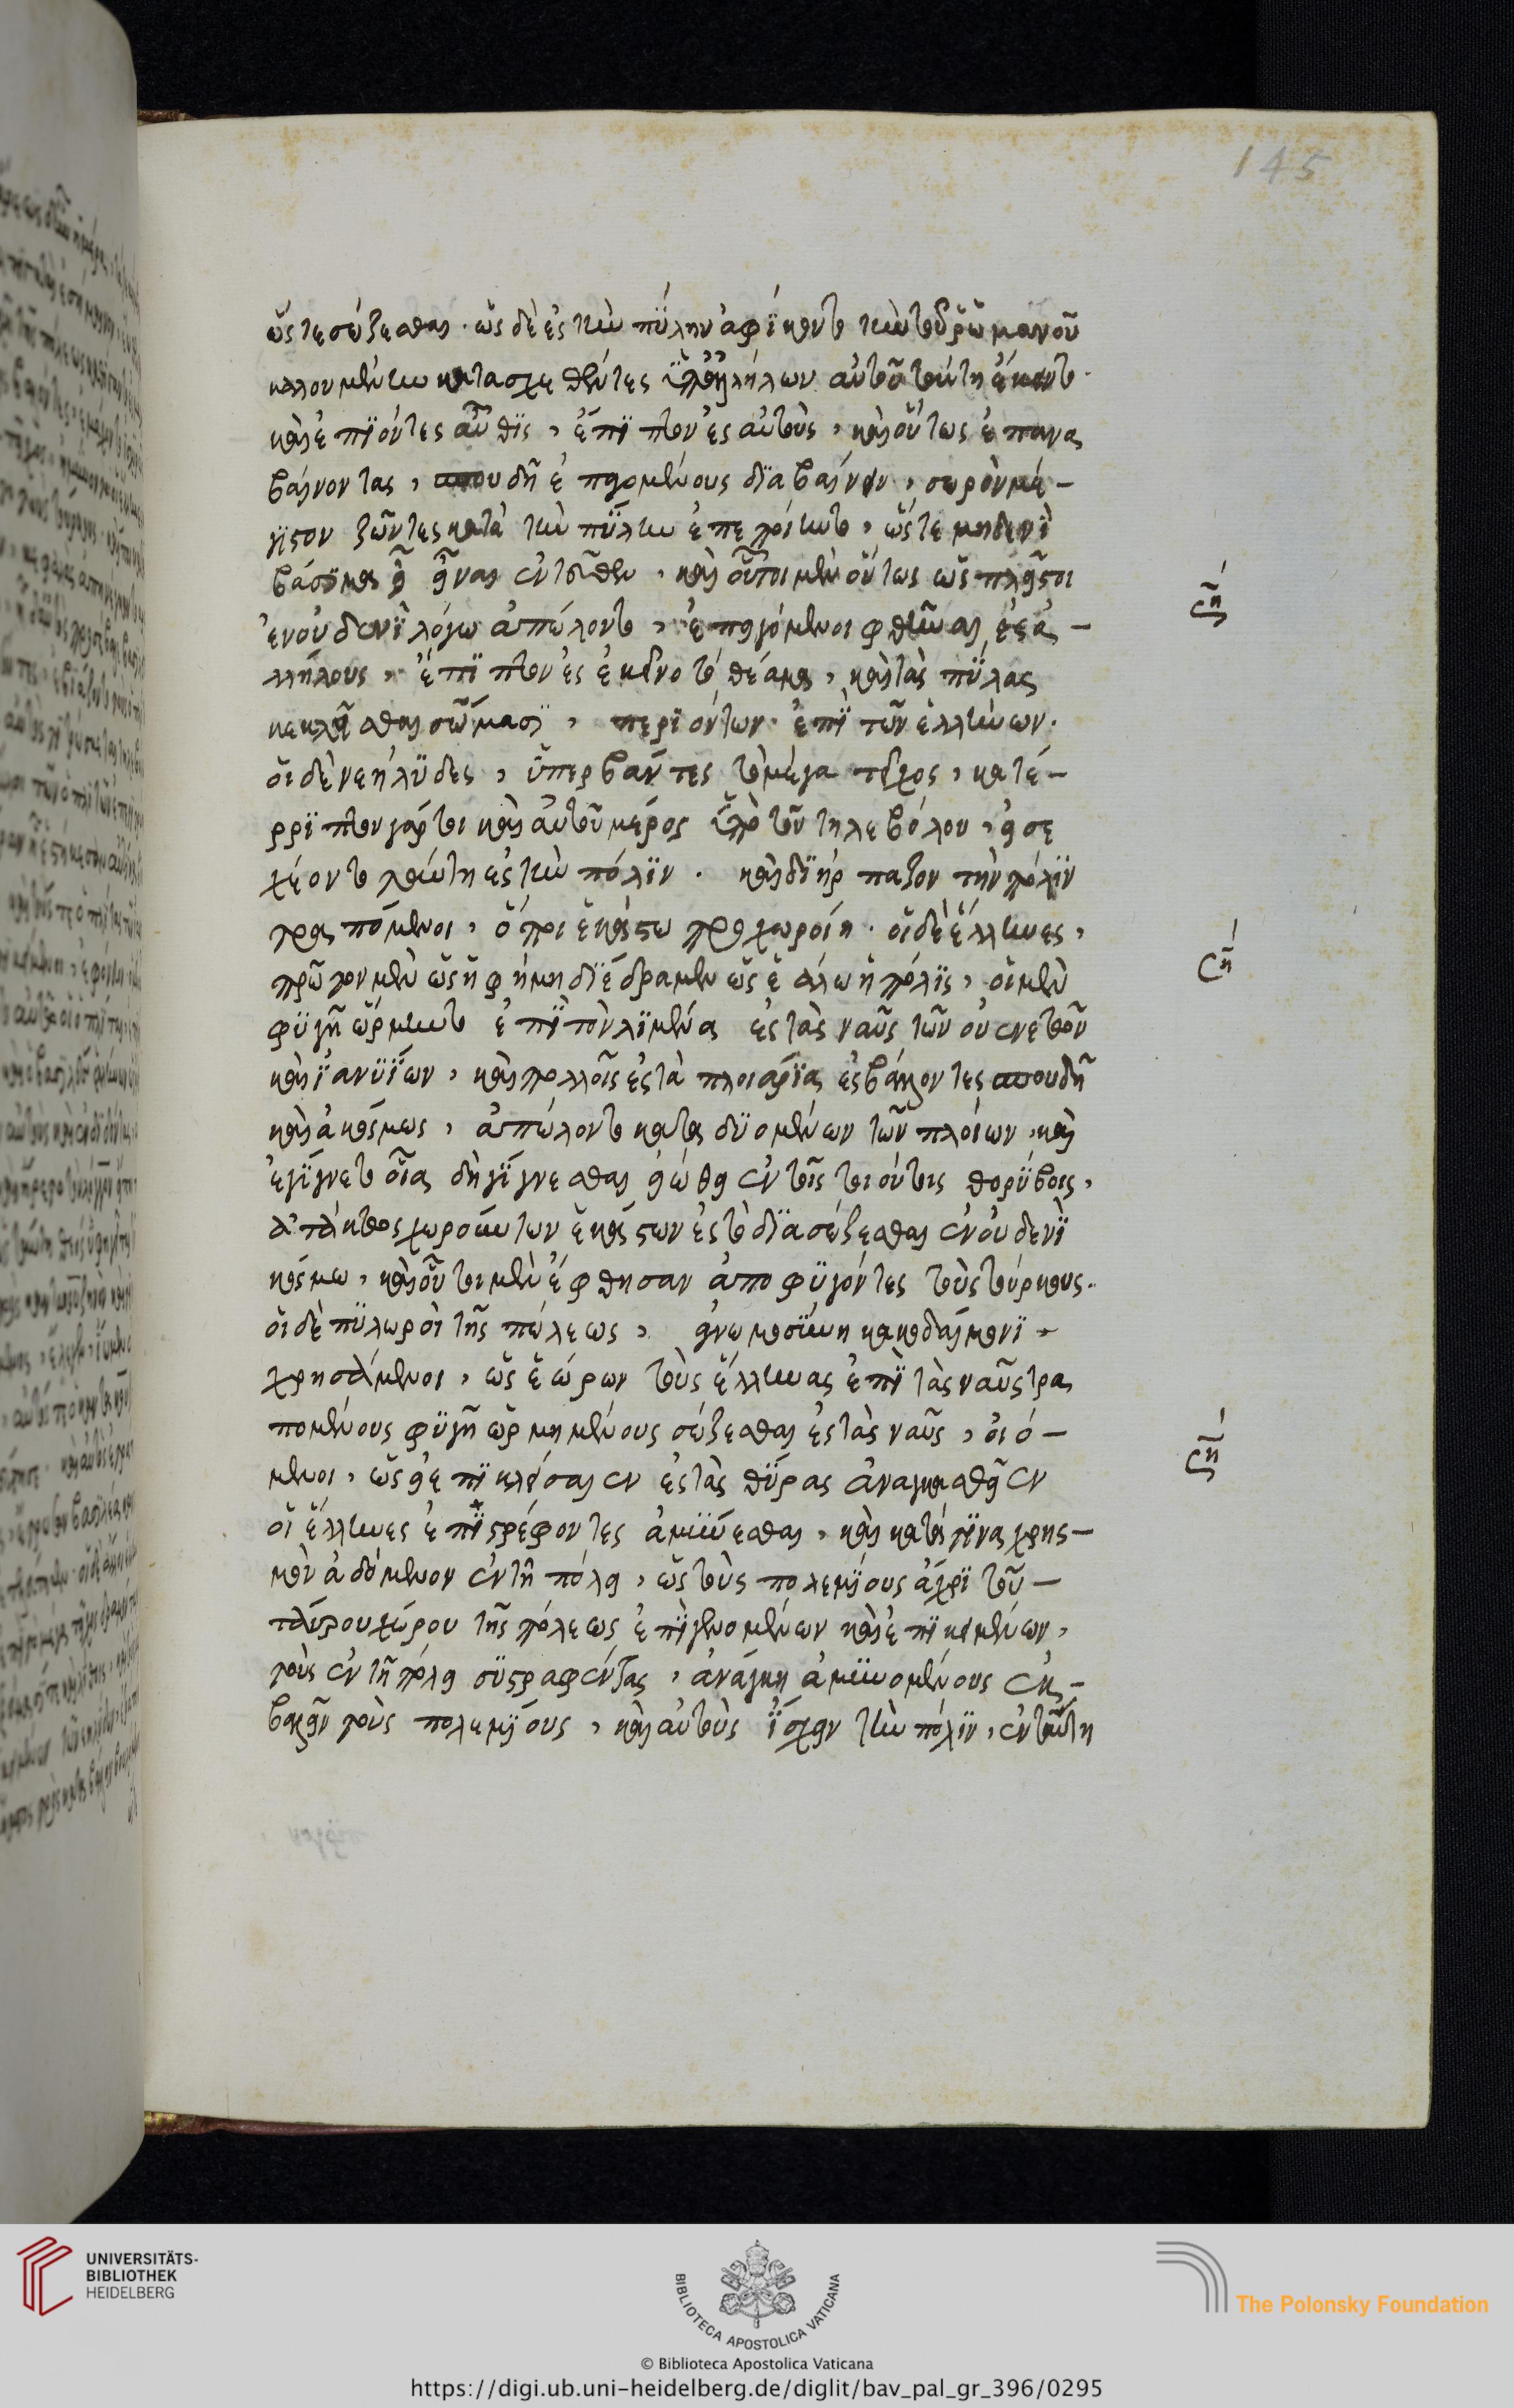 145
ὥστε σώζεσθαι. ὡς δὲ ἐς τὴν πύλην ἀφίκοντο τὴν τοῦ Ῥωμανοῦ
καλουμένην κατασχεθέντες ὑπὸ ἀλλήλων αὐτοῦ ταύτῃ
καὶ ἐπιόντες αὖθις, ἔπιπτον ἐς αὐτοὺς, καὶ οὕτως ἐπανα
βαίνοντας, σπουδῇ ἐπειγομένους διαβαίνειν, σωρὸν μέ-
γιστον ζῶντες κατὰ τὴν πύλην ἐπεποίηντο, ὥστε μηδενὶ
βάσιμα εἶναι ἐντεῦθεν. καὶ οὗτοι μὲν οὕτως ὡς πλεῖστοι
ἐν οὐδενὶ λόγῳ ἀπώλοντο, ἐπειγόμενοι φθῆναι ἐς ἀ-
λλήλους, ἔπιπτον ἐς ἐκεῖνο τὸ θέαμα, καὶ τὰς πύλας
κεκλεῖσθαι σώμασι, περιόντων ἐπὶ τῶν ἑλλήνων.
οἱ δὲ νεήλυδες, ὑπερβάντες τὸ μέγα τεῖχος, κατέ-
ρριπτον γάρ τοι καὶ αὐτοῦ μέρος ὑπὸ τοῦ τηλεβόλου, εἰσε
χέοντο ταύτῃ ἐς τὴν πόλιν. καὶ διήρπαζον τὴν πόλιν
τραπόμενοι, ὅποι ἑκάστῳ προχωροίη. οἱ δὲ ἕλληνες,
πρῶτον μὲν ὡς ἡ φήμη διέδραμεν ὡς ἑάλω ἡ πόλις, οἱ μὲν
φυγῇ ὥρμηντο ἐπὶ τὸν λιμένα ἐς τὰς ναῦς τῶν οὐενετῶν
καὶ ἰανυίων, καὶ πολλοῖς ἐς τὰ πλοιάρια ἐσβάλλοντες σπουδῇ
καὶ ἀκόσμως, ἀπώλοντο καταδυομένων τῶν πλοίων, καὶ
ἐγίγνετο οἷα δὴ γίγνεσθαι εἴωθει ἐν τοῖς τοιούτοις θορύβοις,
ἀτάκτως χωρούντων ἑκάστων ἐς τὸ διασώζεσθαι ἐν οὐδενὶ
κόσμῳ, καὶ οὗτοι μὲν ἔφθησαν ἀποφυγόντες τοὺς τούρκους.
οἱ δὲ πυλωροὶ τῆς πόλεως, ἀγνωμοσύνῃ κακοδαίμονι
χρησάμενοι, ὡς ἑώρων τοὺς ἕλληνας ἐπὶ τὰς ναῦς τρα
πομένους φυγῇ ὡρμημένους σώζεσθαι ἐς τὰς ναῦς, οἰό-
μενοι, ὡς εἰ ἐπικλείσαιεν ἐς τὰς θύρας ἀναγκασθεῖεν
οἱ ἕλληνες ἐπιστρέφοντες ἀμύνεσθαι, καὶ κατά τινα χρησ-
μὸν ἀδόμενον ἐν τῇ πόλει, ὡς τοὺς πολεμίους ἄχρι τοῦ
ταύρου χώρου τῆς πόλεως ἐπιγενομένων καὶ ἐπικειμένων,
τοὺς ἐν τῇ πόλει συστραφέντας, ἀνάγκῃ ἀμυνομένους ἐκ-
βαλεῖν τοὺς πολεμίους, καὶ αὐτοὺς ἴσχειν τὴν πόλιν, ἐν ταύτῃ
UNIVERSITÄTS-
BIBLIOTHEK
HEIDELBERG
BIBLIOTECA APOSTOLICA VATICANA
The Polonsky Foundation
© Biblioteca Apostolica Vaticana
https://digi.ub.uni-heidelberg.de/diglit/bav_pal_gr_396/0295